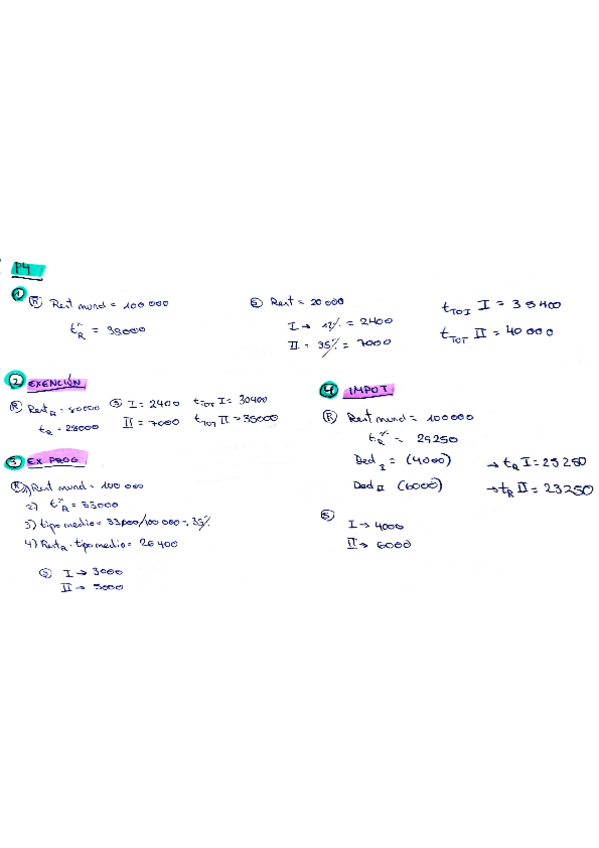 P4
① Ⓡ Rent mund = 100 000
t*R = 33000
Ⓢ Rent = 20000
I → 12% = 2400
II = 35% = 7000
tTOT I = 35400
tTOT II = 40000
② EXENCIÓN
Ⓡ RentR = 80000
tR = 28000
Ⓢ I = 2400
II = 7000
tTOT I = 30400
tTOT II = 35000
③ EX PROG
Ⓡ 1) Rent mund = 100 000
2) t*R = 33000
3) tipo medio = 33000/100 000 = 33%
4) RentR · tipo medio = 26400
Ⓢ I → 3000
II → 5000
④ IMPUT
Ⓡ Rent mund = 100000
t*R = 29250
DedI = (4000) → tR I = 25250
DedII (6000) → tR II = 23250
Ⓢ
I → 4000
II → 6000